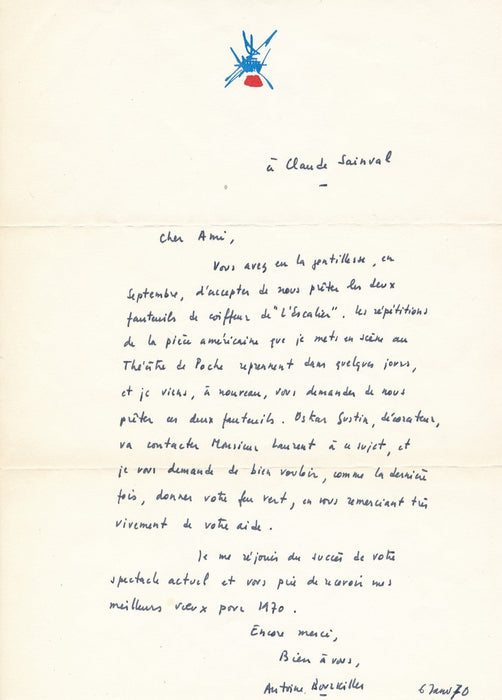 à Claude Sainval
Cher Ami,
Vous avez eu la gentillesse, en
Septembre, d'accepter de nous prêter les deux
fauteuils de coiffeur de "L'Escalier". Les répétitions
de la pièce américaine que je mets en scène au
Théâtre de Poche reprennent dans quelques jours,
et je viens, à nouveau, vous demander de nous
prêter ces deux fauteuils. Oskar Gustin, décorateur,
va contacter Monsieur Laurent à ce sujet, et
je vous demande de bien vouloir, comme la dernière
fois, donner votre feu vert, en vous remerciant très
vivement de votre aide.
Je me réjouis du succès de votre
spectacle actuel et vous prie de recevoir mes
meilleurs vœux pour 1970.
Encore merci,
Bien à vous,
Antoine Bourseiller
6 Janv 70